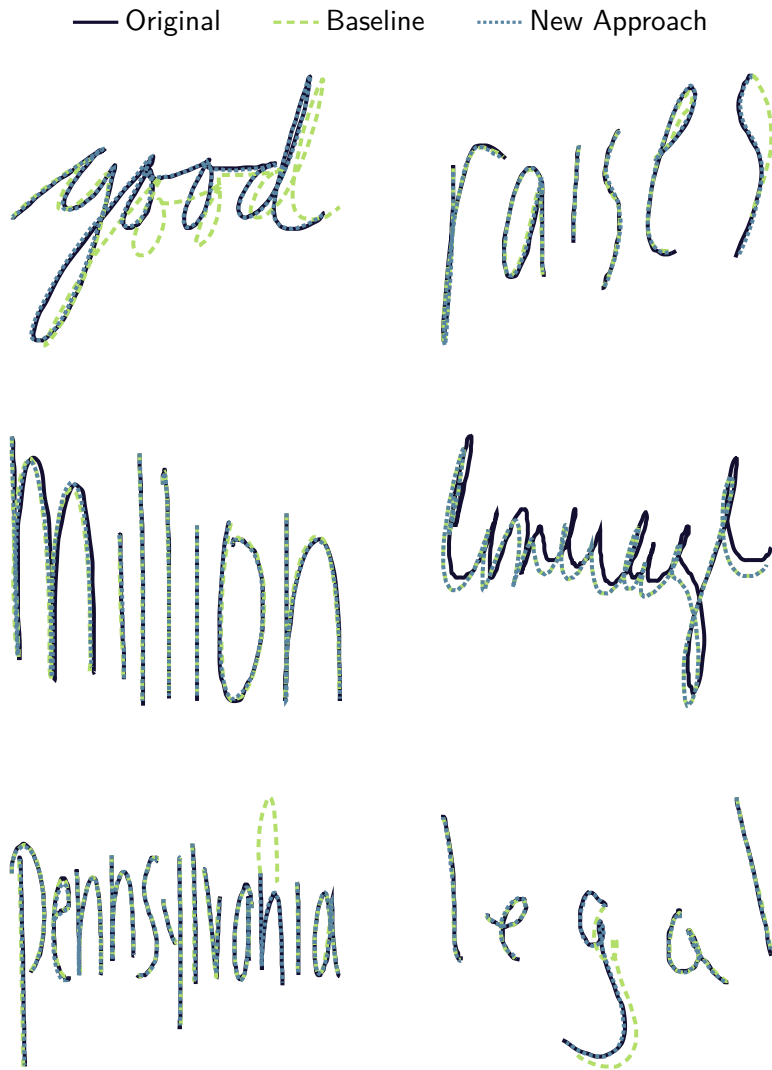 Original Baseline New Approach
good raises
Million
pennsylvania legal